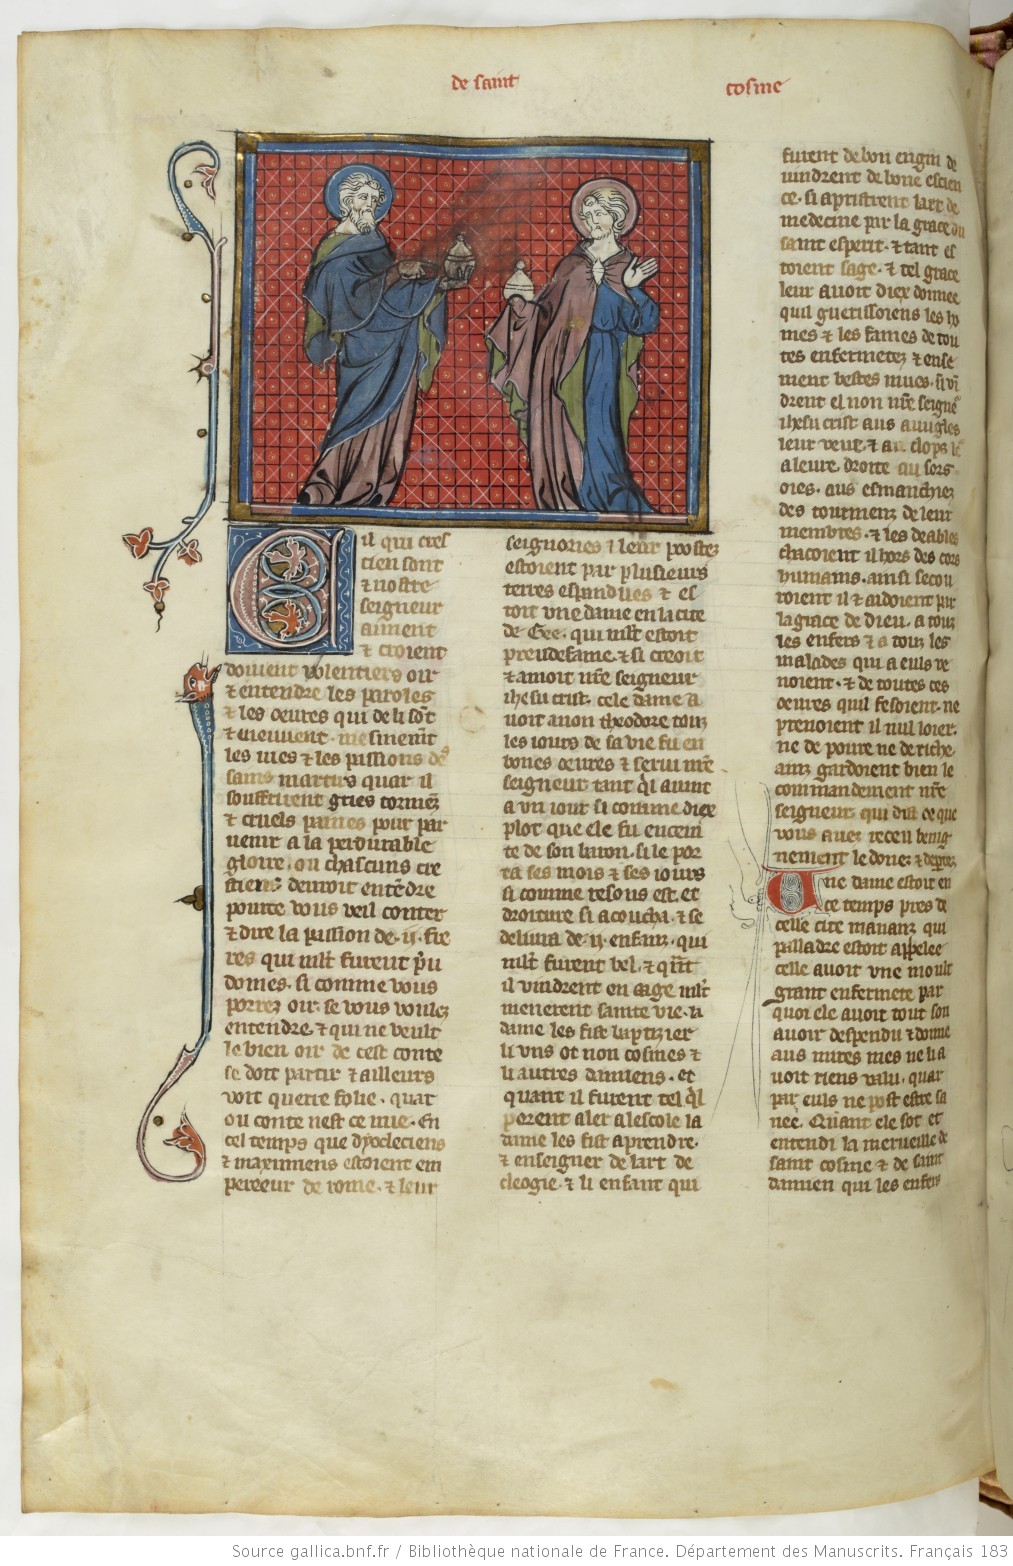 de saint cosme
Cil qui cres
tien sont
⁊ nostre
seigneur
aiment
⁊ croient
doivent volentiers oir
⁊ entendre les paroles
⁊ les oeures qui de li sõt
⁊ viennent
les vies ⁊ les passions des
sains martirs quar il
souffrirent gries tormẽz
⁊ cruels paines pour par
venir a la perdurable
gloire. ou chascuns cre
stiens devroit entẽdre
pource vous veil conter
⁊ dire la passion de .ij. fre
res qui mlt furent p̃u
domes. si comme vous
porrez oir. se vous voulez
entendre. ⁊ qui ne veult
le bien oir de cest conte
se doit partir ⁊ ailleurs
voit querre folie. quar
ou conte nest ce mie. En
cel temps que dyocleciens
⁊ maximiens estoient em
pereeur de rome. ⁊ leur
seignories ⁊ leur postez
estoient par plusieurs
terres espandues ⁊ es
toit vne dame en la cite
de Gee. qui mlt estoit
preudefame. ⁊ si creoit
⁊ amoit nr̃e seigneur
ihesu crist. cele dame a
uoit a non theodore touz
les iours de sa vie fu en
bones oeures ⁊ servi nr̃e
seigneur tant q̃l avint
a vn iour si comme diex
plot que ele fu encein
te de son baron. si le por
ta ses mois ⁊ ses iours
si comme resons est. et
droiture si acoucha. ⁊ se
deliura de .ij. enfanz. qui
mlt furent bel. ⁊ qñt
il vindrent en aage mlt
menerent sainte vie. la
dame les fist baptizier
li vns ot non cosmes ⁊
li autres damiens. et
quant il furent tel q̃l
porent aler a lescole la
dame les fist aprendre.
⁊ enseigner de lart de
cleogie. ⁊ li enfant qui
furent de bon engin de
uindrent de bone escien
ce. si apristrent lart de
medecine par la grace du
saint esperit. ⁊ tant es
toient sage. ⁊ tel grace
leur avoit diex donnee
quil guerissoiens les ho
mes ⁊ les fames de tou
tes enfermetez ⁊ ense
ment bestes mues. si rẽ
drent el non nr̃e seigñr
ihesu crist aus avugles
leur veue. ⁊ clops
aleure droite au sors
oies. aus esmanchiez
des tourmenz de leur
membres. ⁊ les deables
chacoient il hors des cors
humains. ainsi secou
roient il ⁊ aidoient par
la grace de dieu. a touz
les enfers ⁊ a touz les
malades qui a euls ve
noient. ⁊ de toutes ces
oeures quil fesoient. ne
prenoient il nul loier.
ne de poure ne de riche.
ainz gardoient bien le
commandement nr̃e
seigneur qui dist ce que
vous avez receu benig
nement le donez
Une dame estoit en
ce temps pres de
celle cite manant qui
palladre estoit appelee
celle avoit vne moult
grant enfermete par
quoi ele avoit tout son
avoir despendu ⁊ donne
aus mires mes ne li a
uoit riens valu. quar
par euls ne post estre sa
nee. Quant ele sot et
entendi la merueille de
saint cosme ⁊ de saint
damien qui les enfers
Source gallica.bnf.fr / Bibliothèque nationale de France. Département des Manuscrits. Français 183